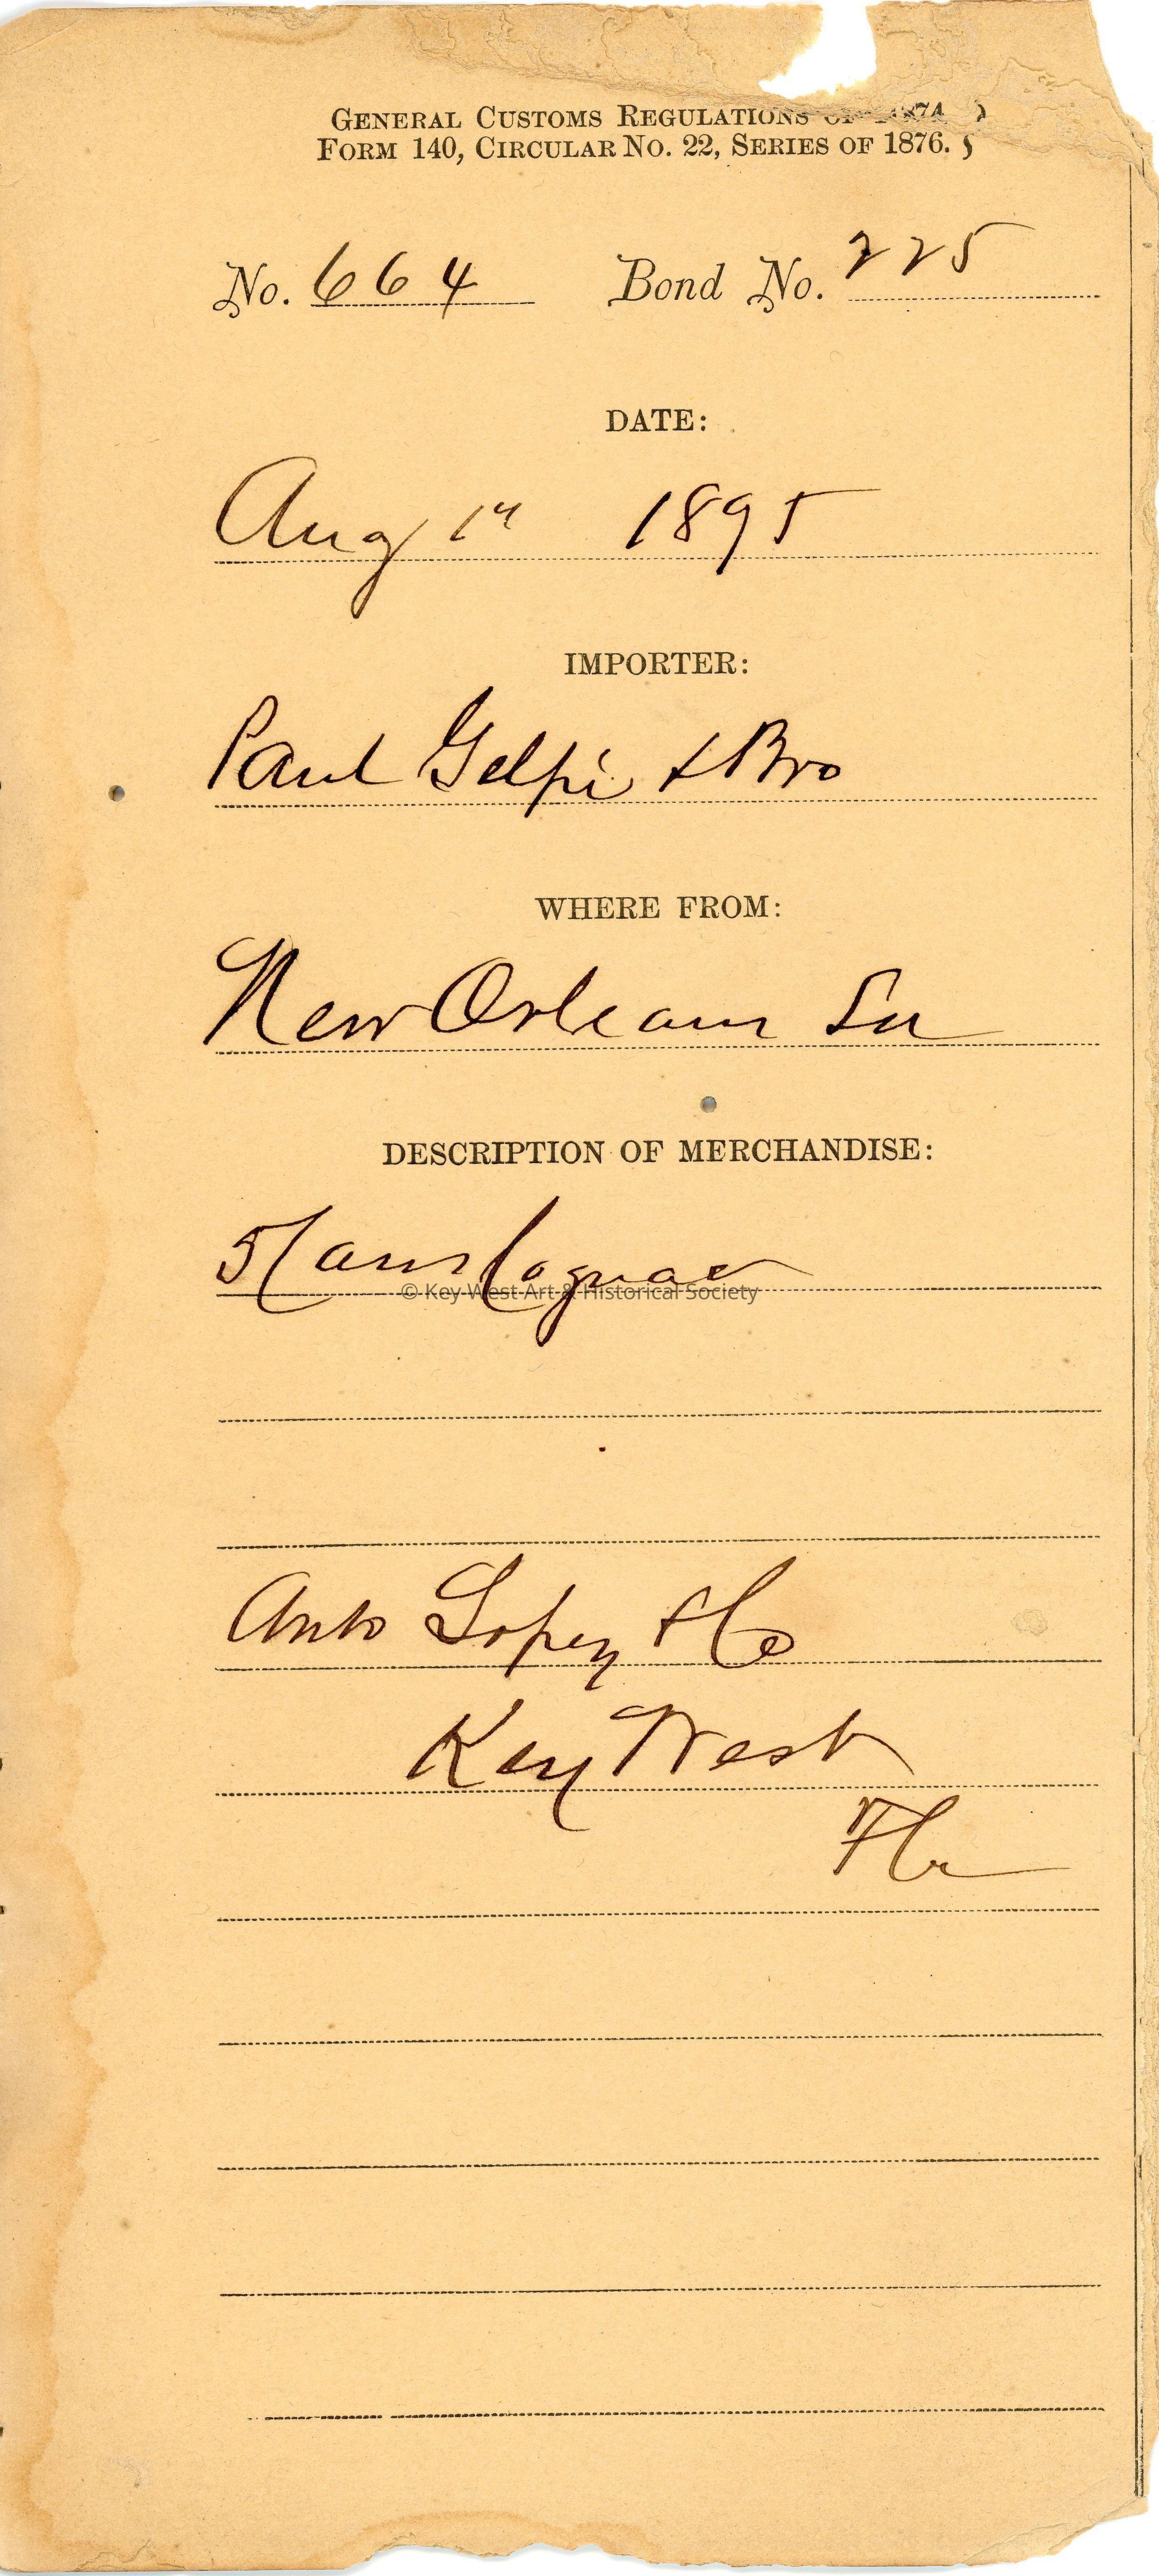 GENERAL CUSTOMS REGULATIONS OF 1874 }
FORM 140, CIRCULAR NO. 22, SERIES OF 1876. }
No. 664 Bond No. 225
DATE:
Aug 1st 1895
IMPORTER:
Paul Gelpi & Bro
WHERE FROM:
New Orleans La
DESCRIPTION OF MERCHANDISE:
5 Cases Cognac
© Key West Art & Historical Society
Anto Lopez & Co
Key West
Fla